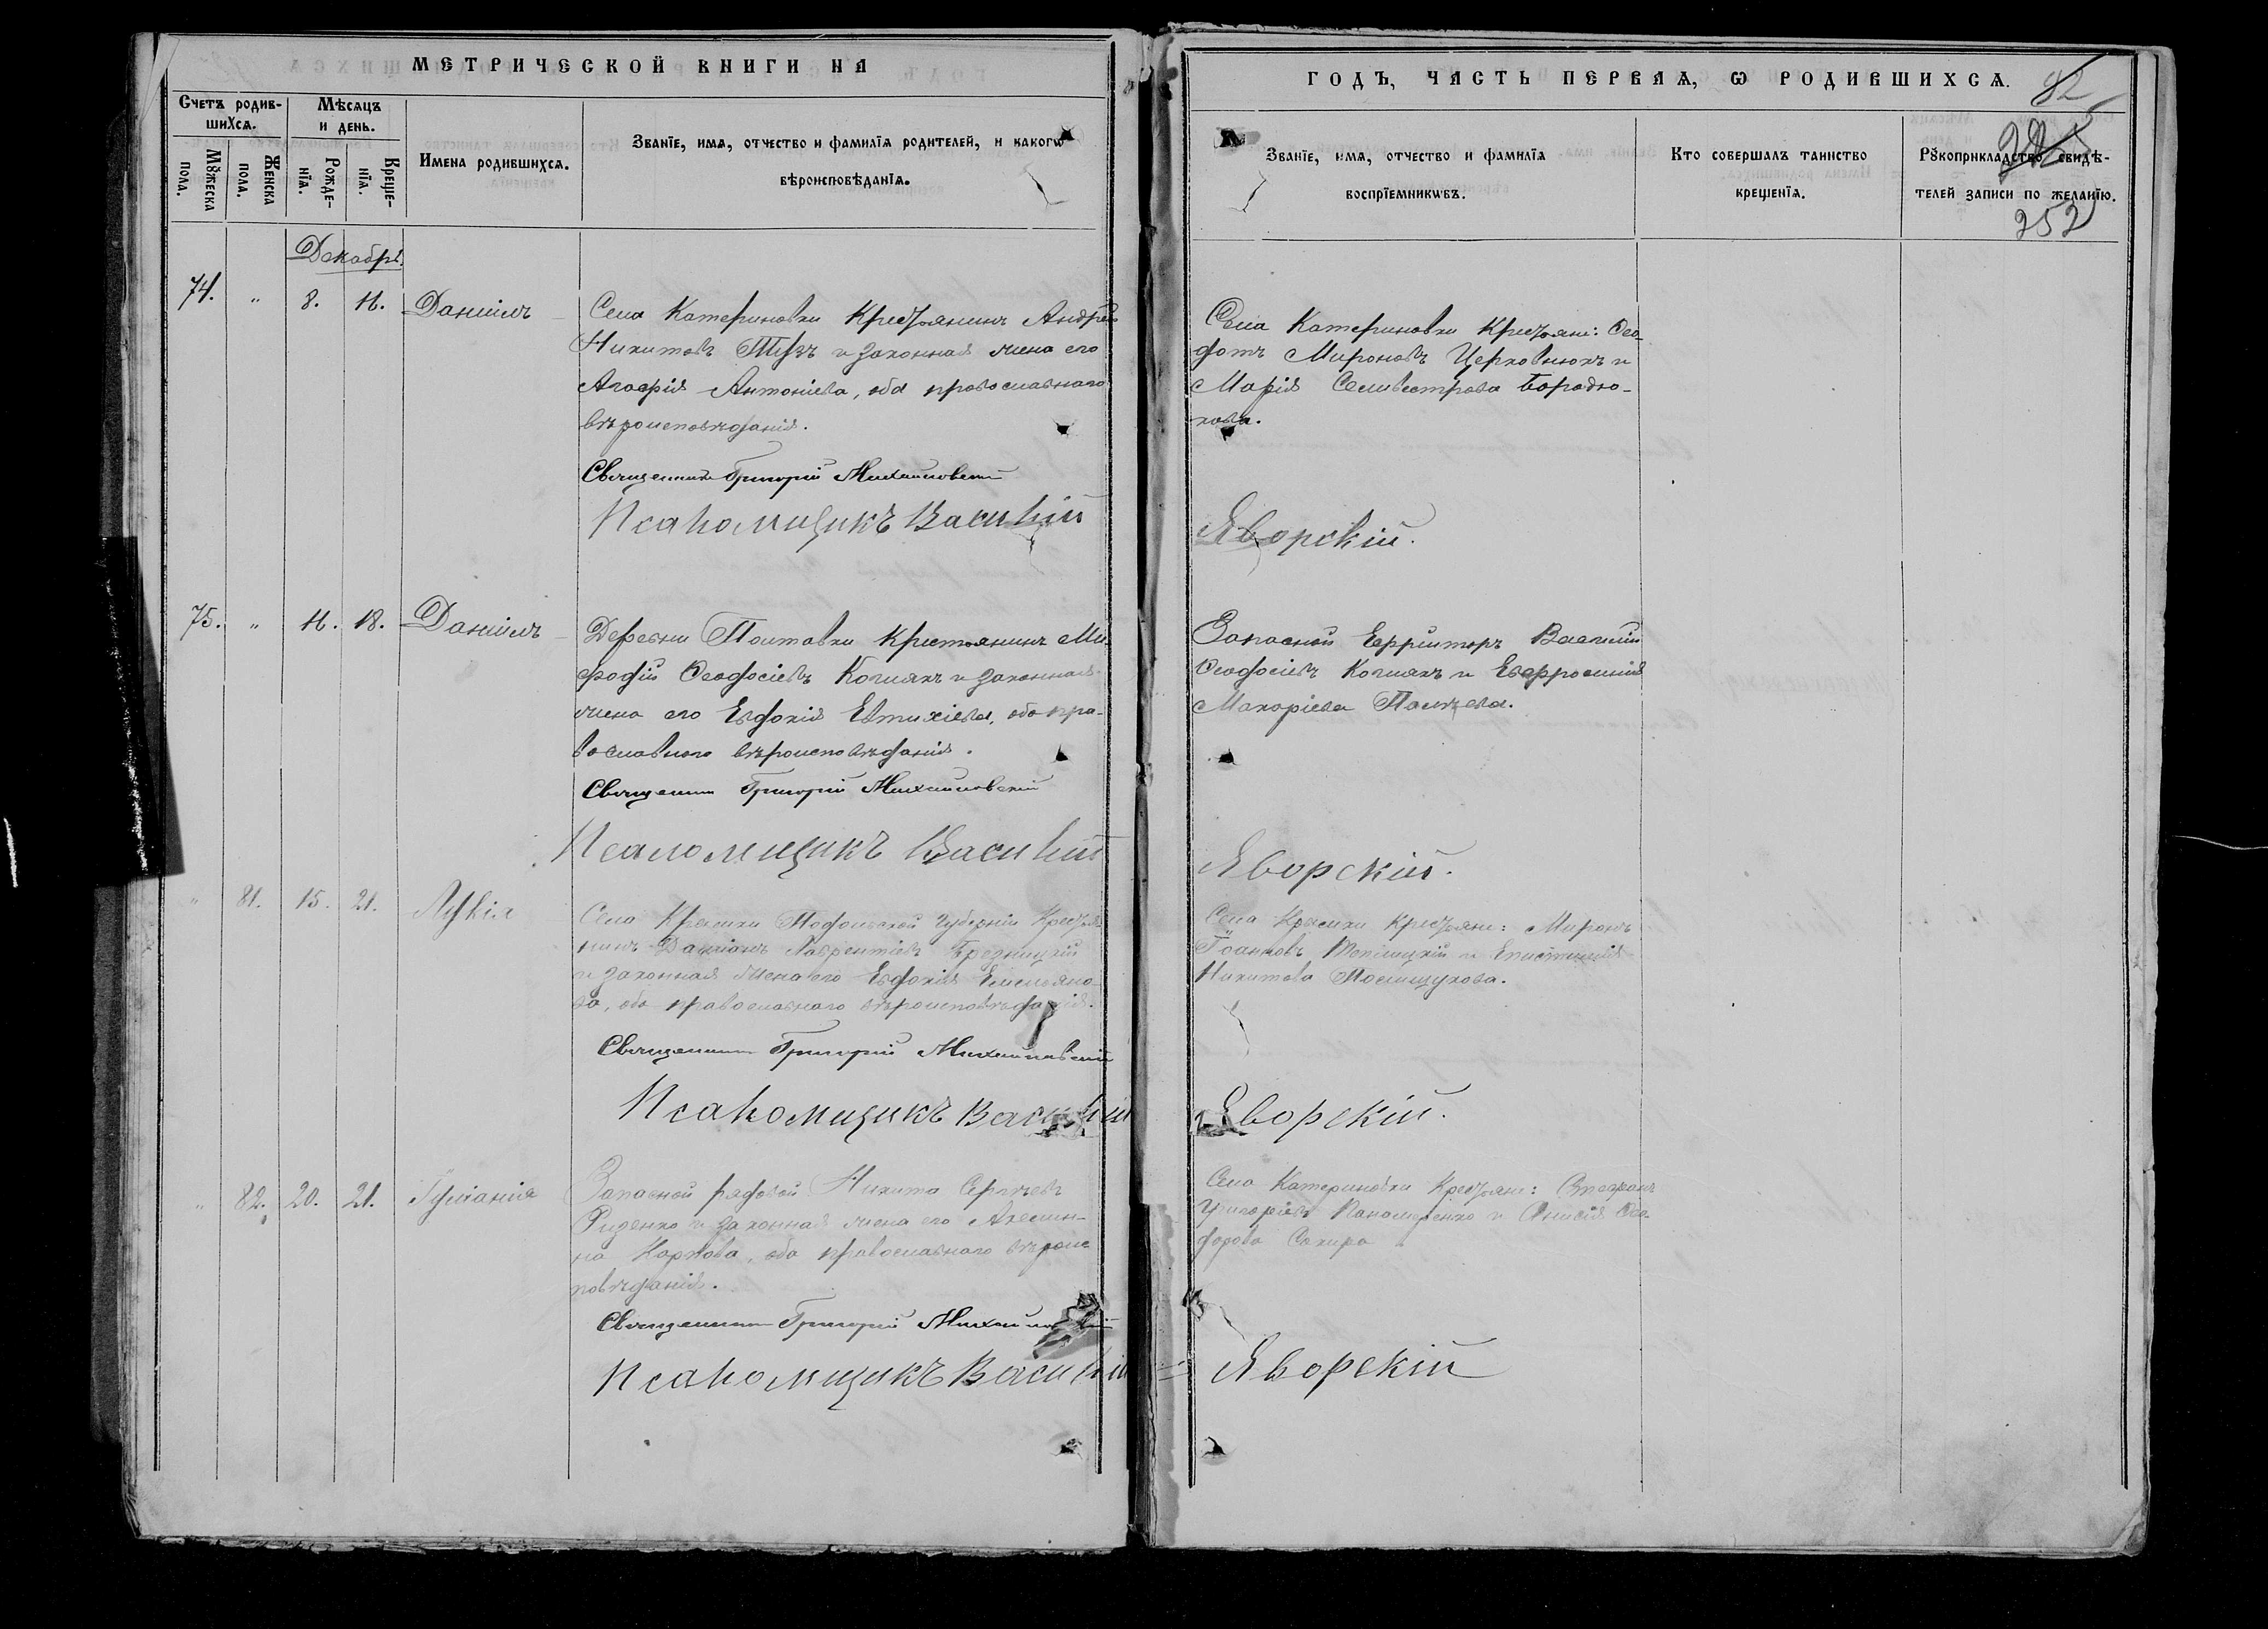 МЕТРИЧЕСКОЙ КНИГИ НА
Счетъ родив-
шихсѧ.
Мѣсѧцъ
и день.
Мꙋжеска
пола.
Женска
пола.
Рожде-
нїѧ.
Креще-
нїѧ.
Имена родившихсѧ.
Званїе, имѧ, отчество и фамилїѧ родителей, и какогѡ
вѣроисповѣданїѧ.
Декабрь.
74. " 8. 11. Даніилъ
Села Катериновки крестьянинъ Андрей
Никитовъ и законная жена его
Агафія Антоніева, оба православнаго
вѣроисповѣданія.
Священникъ Григорій Михайловскій
Псаломщикъ Василій
75. " 11. 18. Даніилъ
Деревни Полтавки крестьянинъ Ме-
фодій Ѳеодосіевъ и законная
жена его Евдокія Евтихіева, оба пра-
вославного вѣроисповѣданія.
Священникъ Григорій Михайловскій
Псаломщикъ Василій
" 81. 15. 21. Лукія
Села Подольской губерніи крестья-
нинъ Даміанъ Лаврентіевъ
и законная жена его Евдокія Емельяно-
ва, оба православнаго вѣроисповѣданія.
Священникъ Григорій Михайловскій
Псаломщикъ Василій
" 82. 20. 21. Іуліанія
Запасной рядовой Никита Сергѣевъ
и законная жена его Акели-
на Карпова, оба православнаго вѣроис
повѣданія.
Священникъ Григорій Михайловскій
Псаломщикъ Василій
ГОДЪ, ЧАСТЬ ПЕРВАѦ, Ѡ РОДИВШИХСѦ.
82
252
Званїе, имѧ, отчество и фамилїѧ
воспрїемникѡвъ.
Кто совершалъ таинство
крещенїѧ.
Рꙋкоприкладство свидѣ-
телей записи по желанїю.
Села Катериновки крестьяне: Ѳео-
дотъ Мироновъ Церковнюкъ и
Марія Селивестрова Бородю-
кова.
Яворскій.
Запасной Ефрейторъ Василій
Ѳеодосіевъ и Евфросинія
Макаріева
Яворскій.
Села крестьяне: Миронъ
Іоанновъ и Епистимія
Никитова Полищукова.
Яворскій.
Села Катериновки крестьяне: Стефанъ
Григоріевъ Пономаренко и Анисія Ѳео-
дорова Сокира
Яворскій